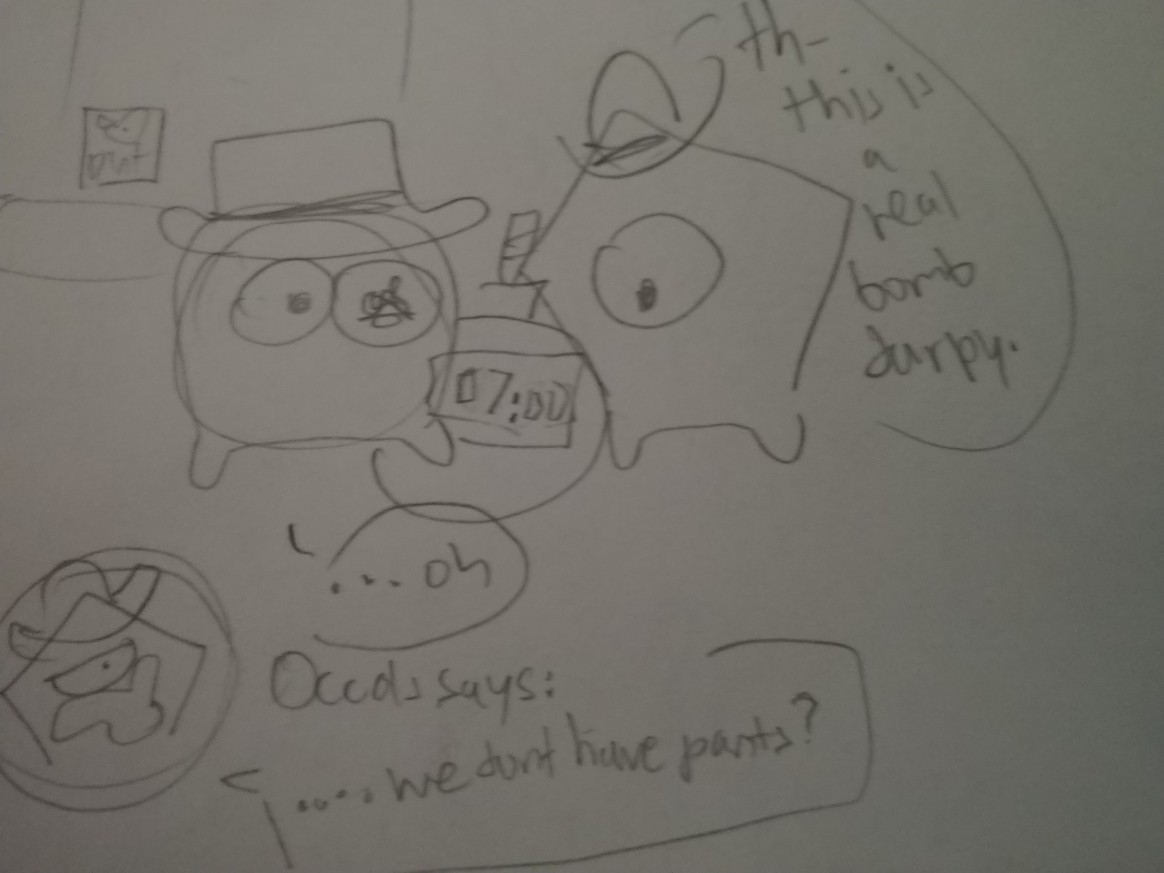 th-
this is
a
real
bomb
durpy.
07:00
... oh
says:
.... we dont have pants?